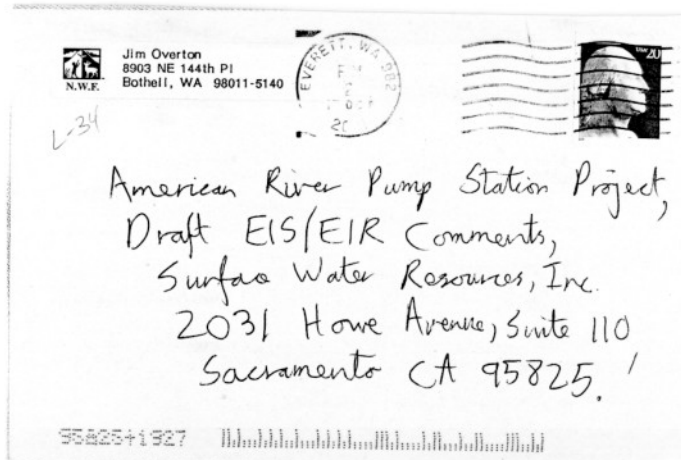 N.W.F.
Jim Overton
8903 NE 144th Pl
Bothell, WA 98011-5140
EVERETT, WA 982
USA 20
L-34
American River Pump Station Project,
Draft EIS/EIR Comments,
Surface Water Resources, Inc.
2031 Howe Avenue, Suite 110
Sacramento CA 95825.
95825+1927